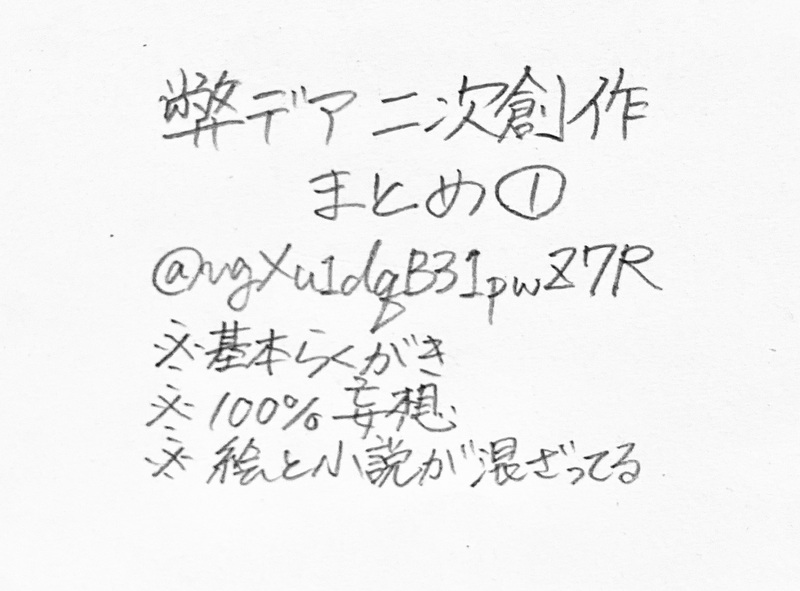 弊デア二次創作
まとめ①
@vgXu1dqB31pwZ7R
※基本らくがき
※100%妄想
※絵と小説が混ざってる